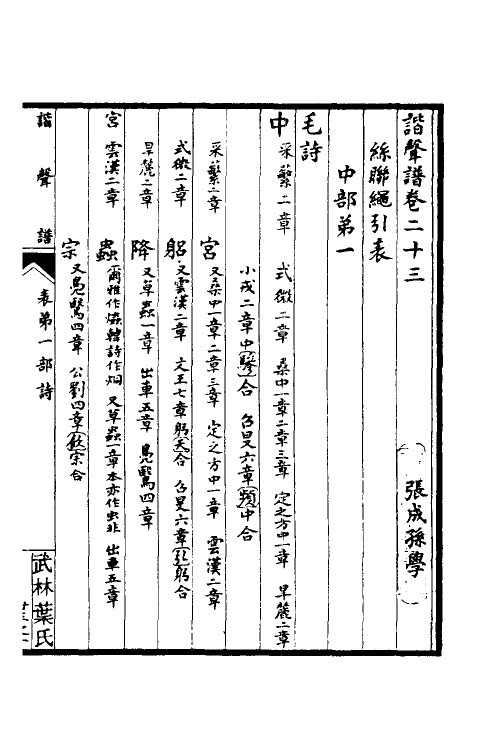 諧聲譜卷二十三 張成孫學
絲聯繩引表
中部第一
毛詩
中 采蘩二章 式微二章 桑中一章二章三章 定之方中一章 旱麓二章
小戎二章中驂合 召旻六章頻中合
采蘩二章 宮 又桑中一章二章三章 定之方中一章 雲漢二章
式微二章 躬 又雲漢二章 文王七章躬天合 召旻六章引躬合
旱麓二章 降 又草蟲一章 出車五章 鳧鷖四章
宮 雲漢二章 蟲 爾雅作爞韓詩作烔 又草蟲一章本亦作虫非 出車五章
宗 又鳧鷖四章 公劉四章飲宗合
諧聲譜 表第一部詩 武林葉氏